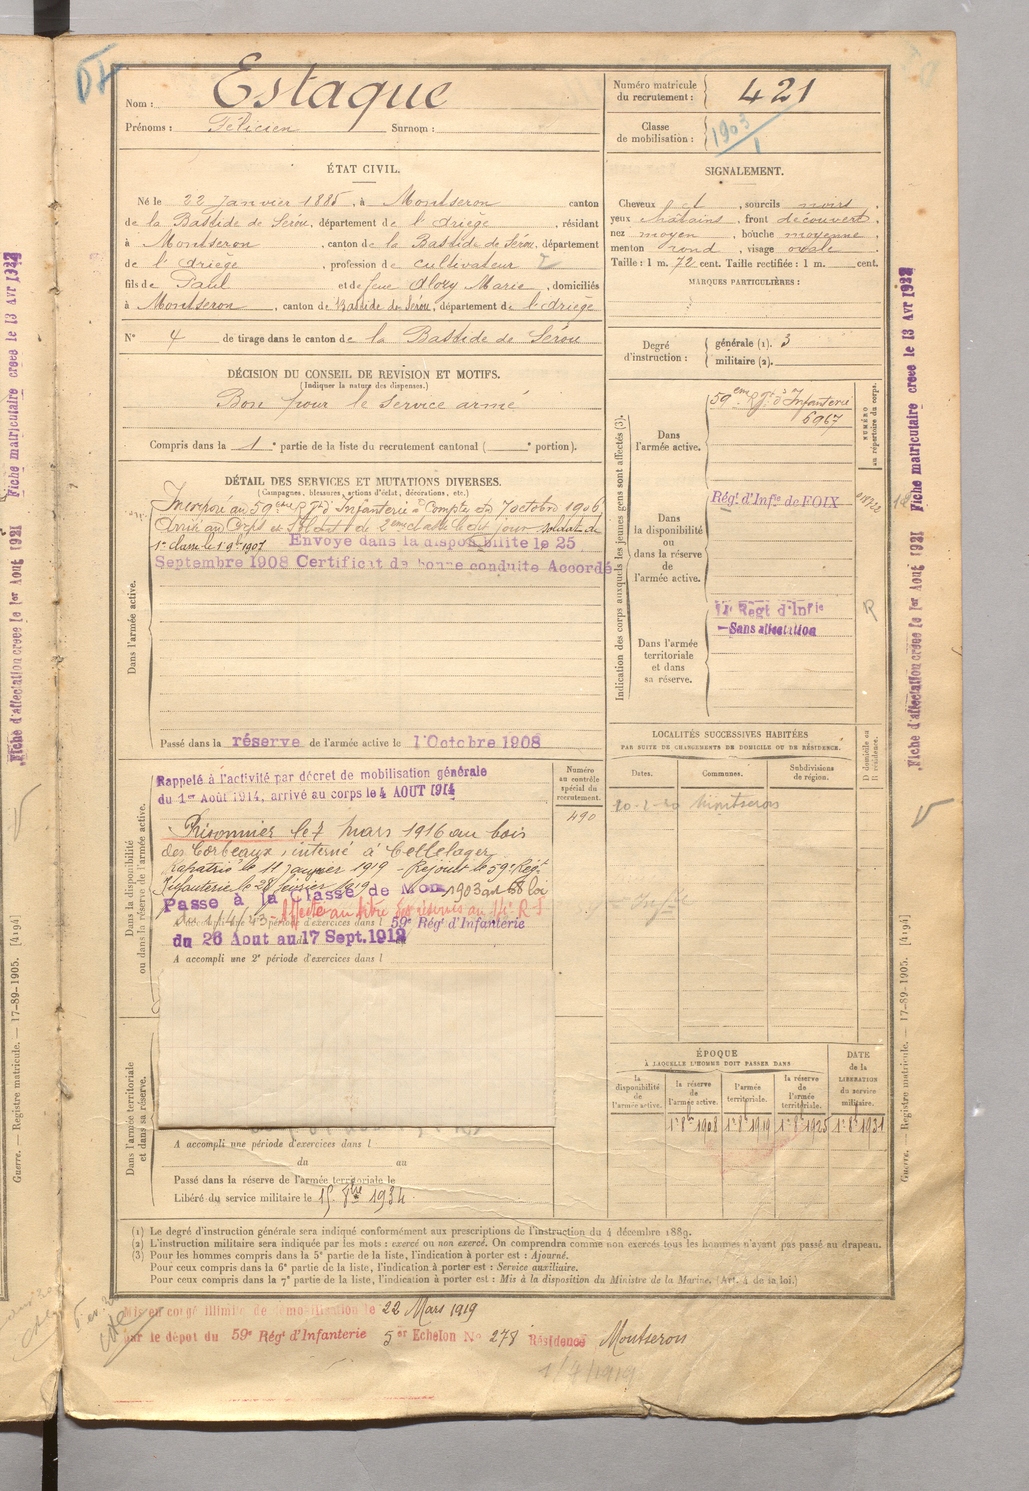 Estaque
Nom :
Prénoms : Félicien Surnom :
ÉTAT CIVIL.
Né le 22 Janvier 1885, à Montseron canton
de la Bastide de Sérou, département de l'Ariège, résidant
à Montseron, canton de la Bastide de Sérou, département
de l'Ariège, profession de cultivateur
fils de Paul et de feue Alozy Marie, domiciliés
à Montseron, canton de Bastide de Sérou, département de l'Ariège
N° 4 de tirage dans le canton de la Bastide de Sérou
DÉCISION DU CONSEIL DE REVISION ET MOTIFS.
(Indiquer la nature des dispenses.)
Bon pour le service armé
Compris dans la 1e partie de la liste du recrutement cantonal ( e portion).
DÉTAIL DES SERVICES ET MUTATIONS DIVERSES.
(Campagnes, blessures, actions d'éclat, décorations, etc.)
Dans l'armée active.
Incorporé au 59ème Rgt d'Infanterie à Compter du 7 octobre 1906
Arrivé au Corps et Soldat de 2eme classe le dit jour soldat de
1e classe le 1 9bre 1907 Envoyé dans la disponibilité le 25
Septembre 1908 Certificat de bonne conduite Accordé
Passé dans la réserve de l'armée active le 1 Octobre 1908
Dans la disponibilité
ou dans la réserve de l'armée active.
Rappelé à l'activité par décret de mobilisation générale
du 1er Août 1914, arrivé au corps le 4 AOUT 1914
Prisonnier le 7 Mars 1916 au bois
des Corbeaux, interné à Cellelager
Rapatrié le 11 janvier 1919 - Rejoint le 59e Régt
Infanterie le 28 février 1919
Passé à la Classe de Mob. 1903 art 58 loi
du 1/4/23 Affecté au titre des réserves au
période d'exercices dans l 59e Régt d'Infanterie
du 26 Aout au 17 Sept. 1912
A accompli une 2e période d'exercices dans l
Dans l'armée territoriale
et dans sa réserve.
A accompli une période d'exercices dans l
du au
Passé dans la réserve de l'armée territoriale le
Libéré du service militaire le 15 8bre 1934
Numéro
au contrôle
spécial du
recrutement.
490
Numéro matricule
du recrutement : 421
Classe
de mobilisation : 1903
1
SIGNALEMENT.
Cheveux et, sourcils noirs
yeux chatains, front découvert,
nez moyen, bouche moyenne
menton rond, visage ovale
Taille : 1 m. 72 cent. Taille rectifiée : 1 m. cent.
MARQUES PARTICULIÈRES :
Degré
d'instruction :
générale (1). 3
militaire (2).
Indication des corps auxquels les jeunes gens sont affectés (3).
NUMÉRO
au répertoire du corps.
Dans
l'armée active.
59eme Rgt d'Infanterie
6967
Dans
la disponibilité
ou
dans la réserve
de
l'armée active.
Régt d'Infie de FOIX
Dans l'armée
territoriale
et dans
sa réserve.
Régt d'Infie
Sans affectation
R
LOCALITÉS SUCCESSIVES HABITÉES
PAR SUITE DE CHANGEMENTS DE DOMICILE OU DE RÉSIDENCE.
Dates.
Communes.
Subdivisions
de région.
D domicile ou
R résidence.
Montseron
ÉPOQUE
À LAQUELLE L'HOMME DOIT PASSER DANS
la
disponibilité
de
l'armée active.
la réserve
de
l'armée active.
l'armée
territoriale.
la réserve
de
l'armée
territoriale.
DATE
de la
LIBÉRATION
du service
militaire.
1er 8bre 1908 1er 8bre 1919 1er 8bre 1925 1er 8bre 1931
(1) Le degré d'instruction générale sera indiqué conformément aux prescriptions de l'instruction du 4 décembre 1889.
(2) L'instruction militaire sera indiquée par les mots : exercé ou non exercé. On comprendra comme non exercés tous les hommes n'ayant pas passé au drapeau.
(3) Pour les hommes compris dans la 5e partie de la liste, l'indication à porter est : Ajourné.
Pour ceux compris dans la 6e partie de la liste, l'indication à porter est : Service auxiliaire.
Pour ceux compris dans la 7e partie de la liste, l'indication à porter est : Mis à la disposition du Ministre de la Marine. (Art. 4 de la loi.)
Mis en congé illimité de démobilisation le 22 Mars 1919
par le dépôt du 59e Régt d'Infanterie 5er Echelon N° 278 Résidence Montseron
Fiche d'affectation créée le 1er Août 1921 Fiche matriculaire créée le 13 Avr 1932
Guerre. — Registre matricule. — 17-89-1905. [4194]
Fiche d'affectation créée le 1er Août 1921 Fiche matriculaire créée le 13 Avr 1932
Guerre. — Registre matricule. — 17-89-1905. [4194]